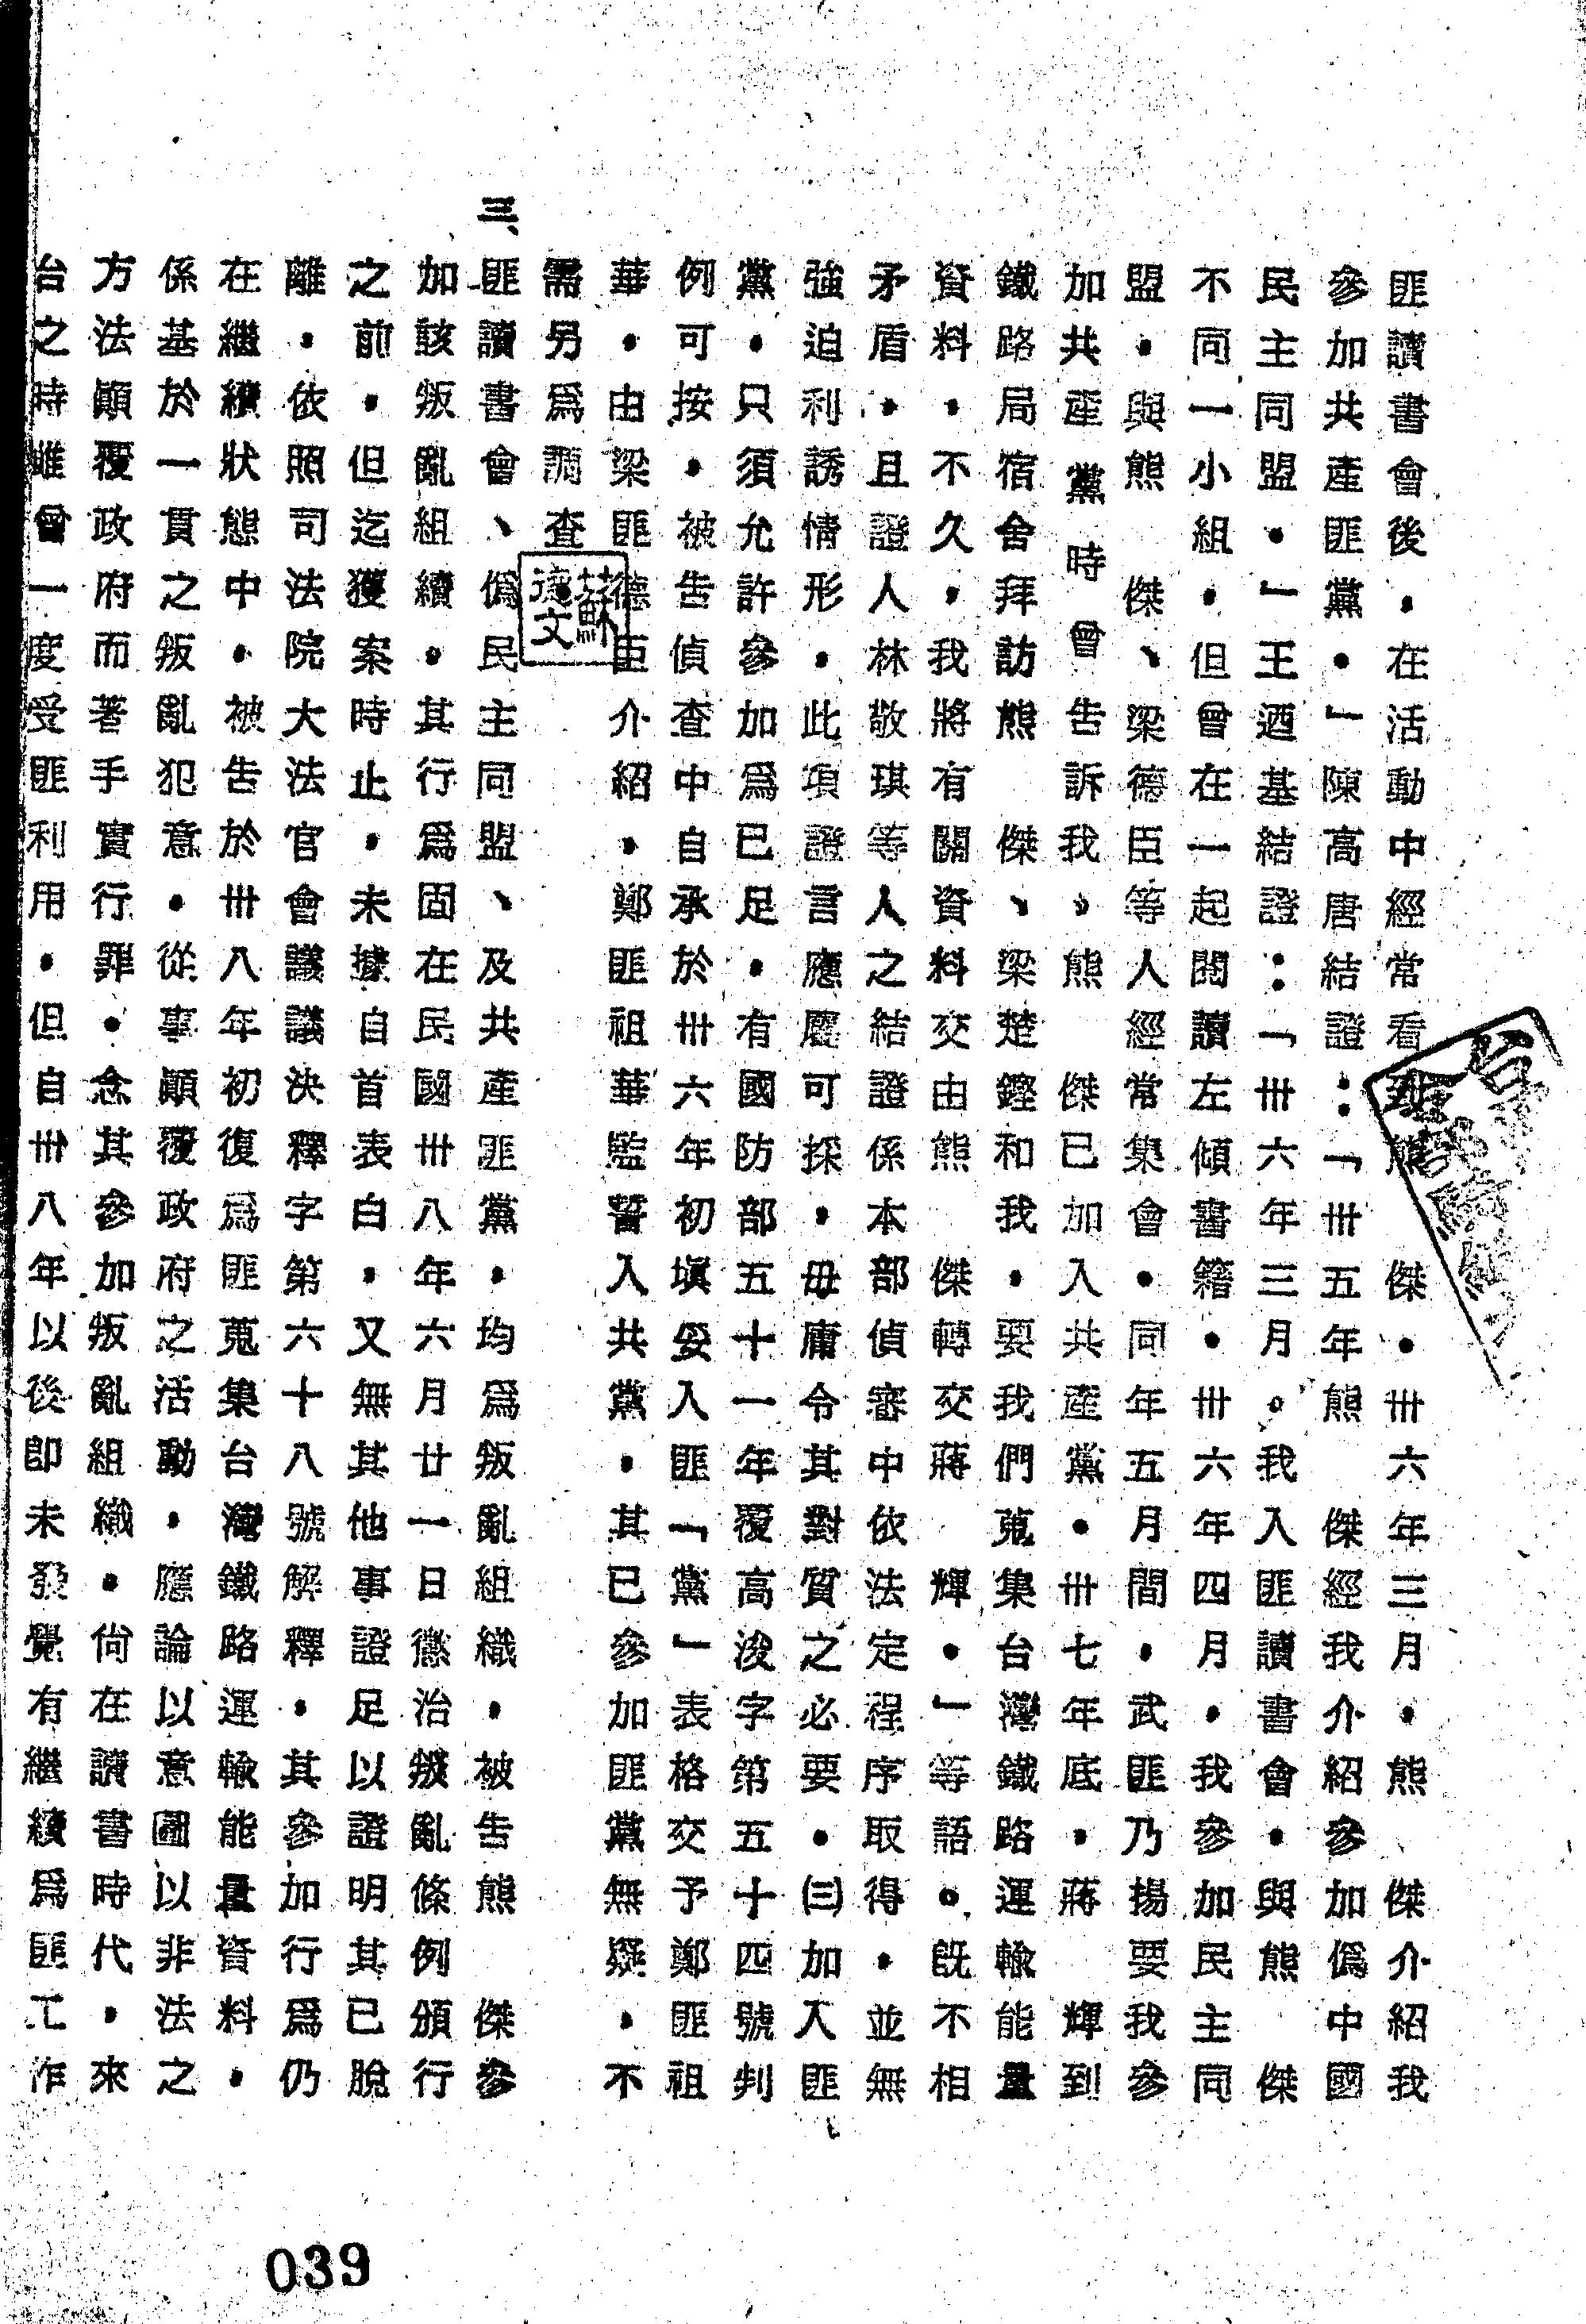 匪讀書會後．在活動中經常看到熊　傑．卅六年三月．熊　傑介紹我
參加共產匪黨．」陳高唐結證：「卅五年熊　傑經我介紹參加偽中國
民主同盟．」王迺基結證：「卅六年三月。我入匪讀書會．與熊　傑
不同一小組．但曾在一起閱讀左傾書籍．卅六年四月．我參加民主同
盟．與熊　傑、梁德臣等人經常集會．同年五月間．武匪乃揚要我參
加共產黨時曾告訴我、熊　傑已加入共產黨．卅七年底．蔣　輝到
鐵路局宿舍拜訪熊　傑、梁楚鏗和我．要我們蒐集台灣鐵路運輸能量
資料．不久．我將有關資料交由熊　傑轉交蔣　輝．」等語。既不相
矛盾．且證人林敬琪等人之結證係本部偵審中依法定程序取得．並無
強迫利誘情形．此項證言應屬可採．毋庸令其對質之必要．㈢加入匪
黨．只須允許參加為已足．有國防部五十一年覆高浚字第五十四號判
例可按．被告偵查中自承於卅六年初填妥入匪「黨」表格交予鄭匪祖
華．由梁匪德臣介紹．鄭匪祖華監誓入共黨．其已參加匪黨無疑．不
需另為調查
蘇德文
三、匪讀書會、偽民主同盟、及共產匪黨．均為叛亂組織．被告熊　傑參
加該叛亂組續．其行為固在民國卅八年六月廿一日懲治叛亂條例頒行
之前．但迄獲案時止．未據自首表白．又無其他事證足以證明其已脫
離．依照司法院大法官會議議決釋字第六十八號解釋．其參加行為仍
在繼續狀態中．被告於卅八年初復為匪蒐集台灣鐵路運輸能量資料．
係基於一貫之叛亂犯意．從事顛覆政府之活動．應論以意圖以非法之
方法顛覆政府而著手實行罪．念其參加叛亂組織．尚在讀書時代．來
台之時雖曾一度受匪利用．但自卅八年以後即未發覺有繼續為匪工作
039